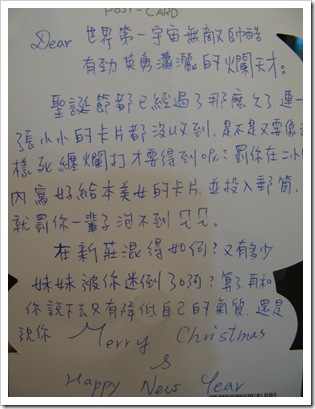 POST-CARD
Dear 世界第一宇宙無敵帥酷
有勁英勇瀟灑的爛天才。
聖誕節都已經過了那麼久了,連一
張小小的卡片都沒收到,是不是又要像
樣死纏爛打才要得到呢?罰你在二小
內寫好給本美女的卡片,並投入郵筒,
就罰你一輩子泡不到
在新莊混得如何?又有多少
妹妹被你迷倒了呢?算了再和
你說下去只有降低自己的氣質,還是
祝你 Merry Christmas
&
Happy New Year